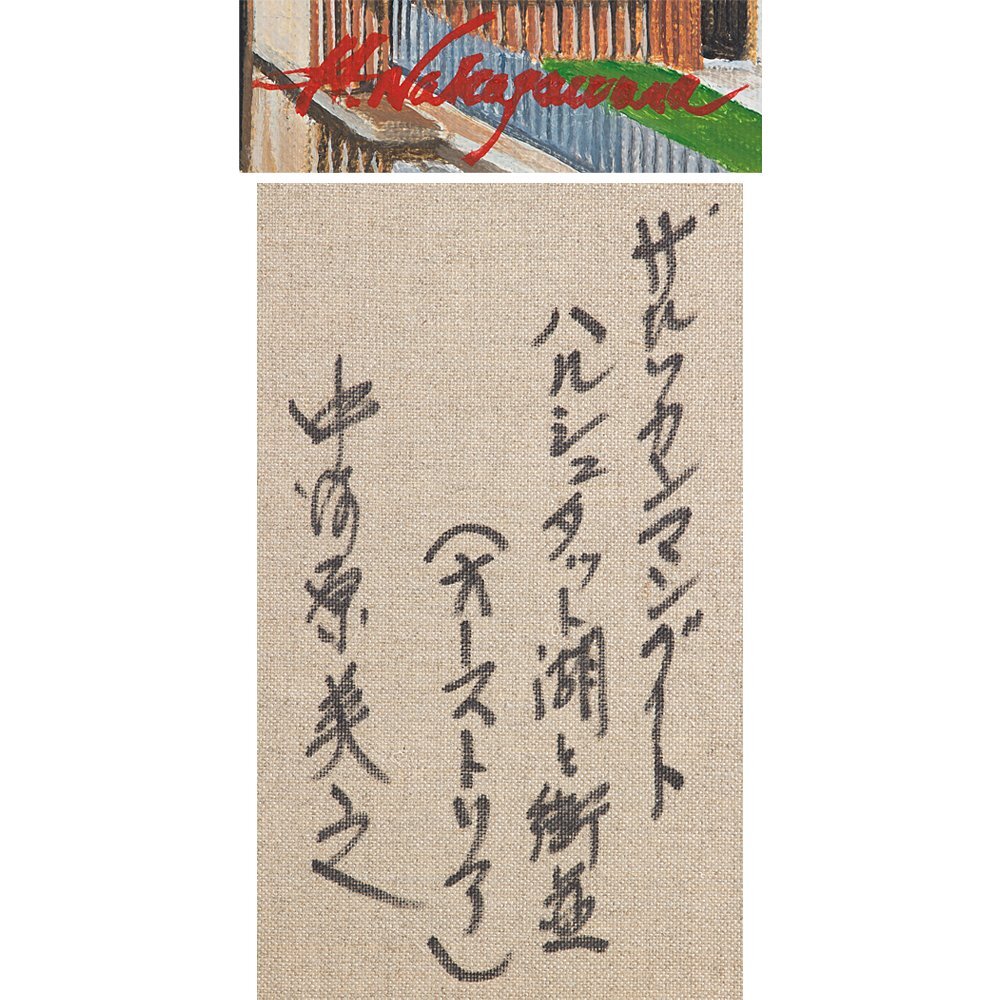 H. Nakagawara
ザルツカンマングート
ハルシュタット湖と街並
(オーストリア)
中河原英之